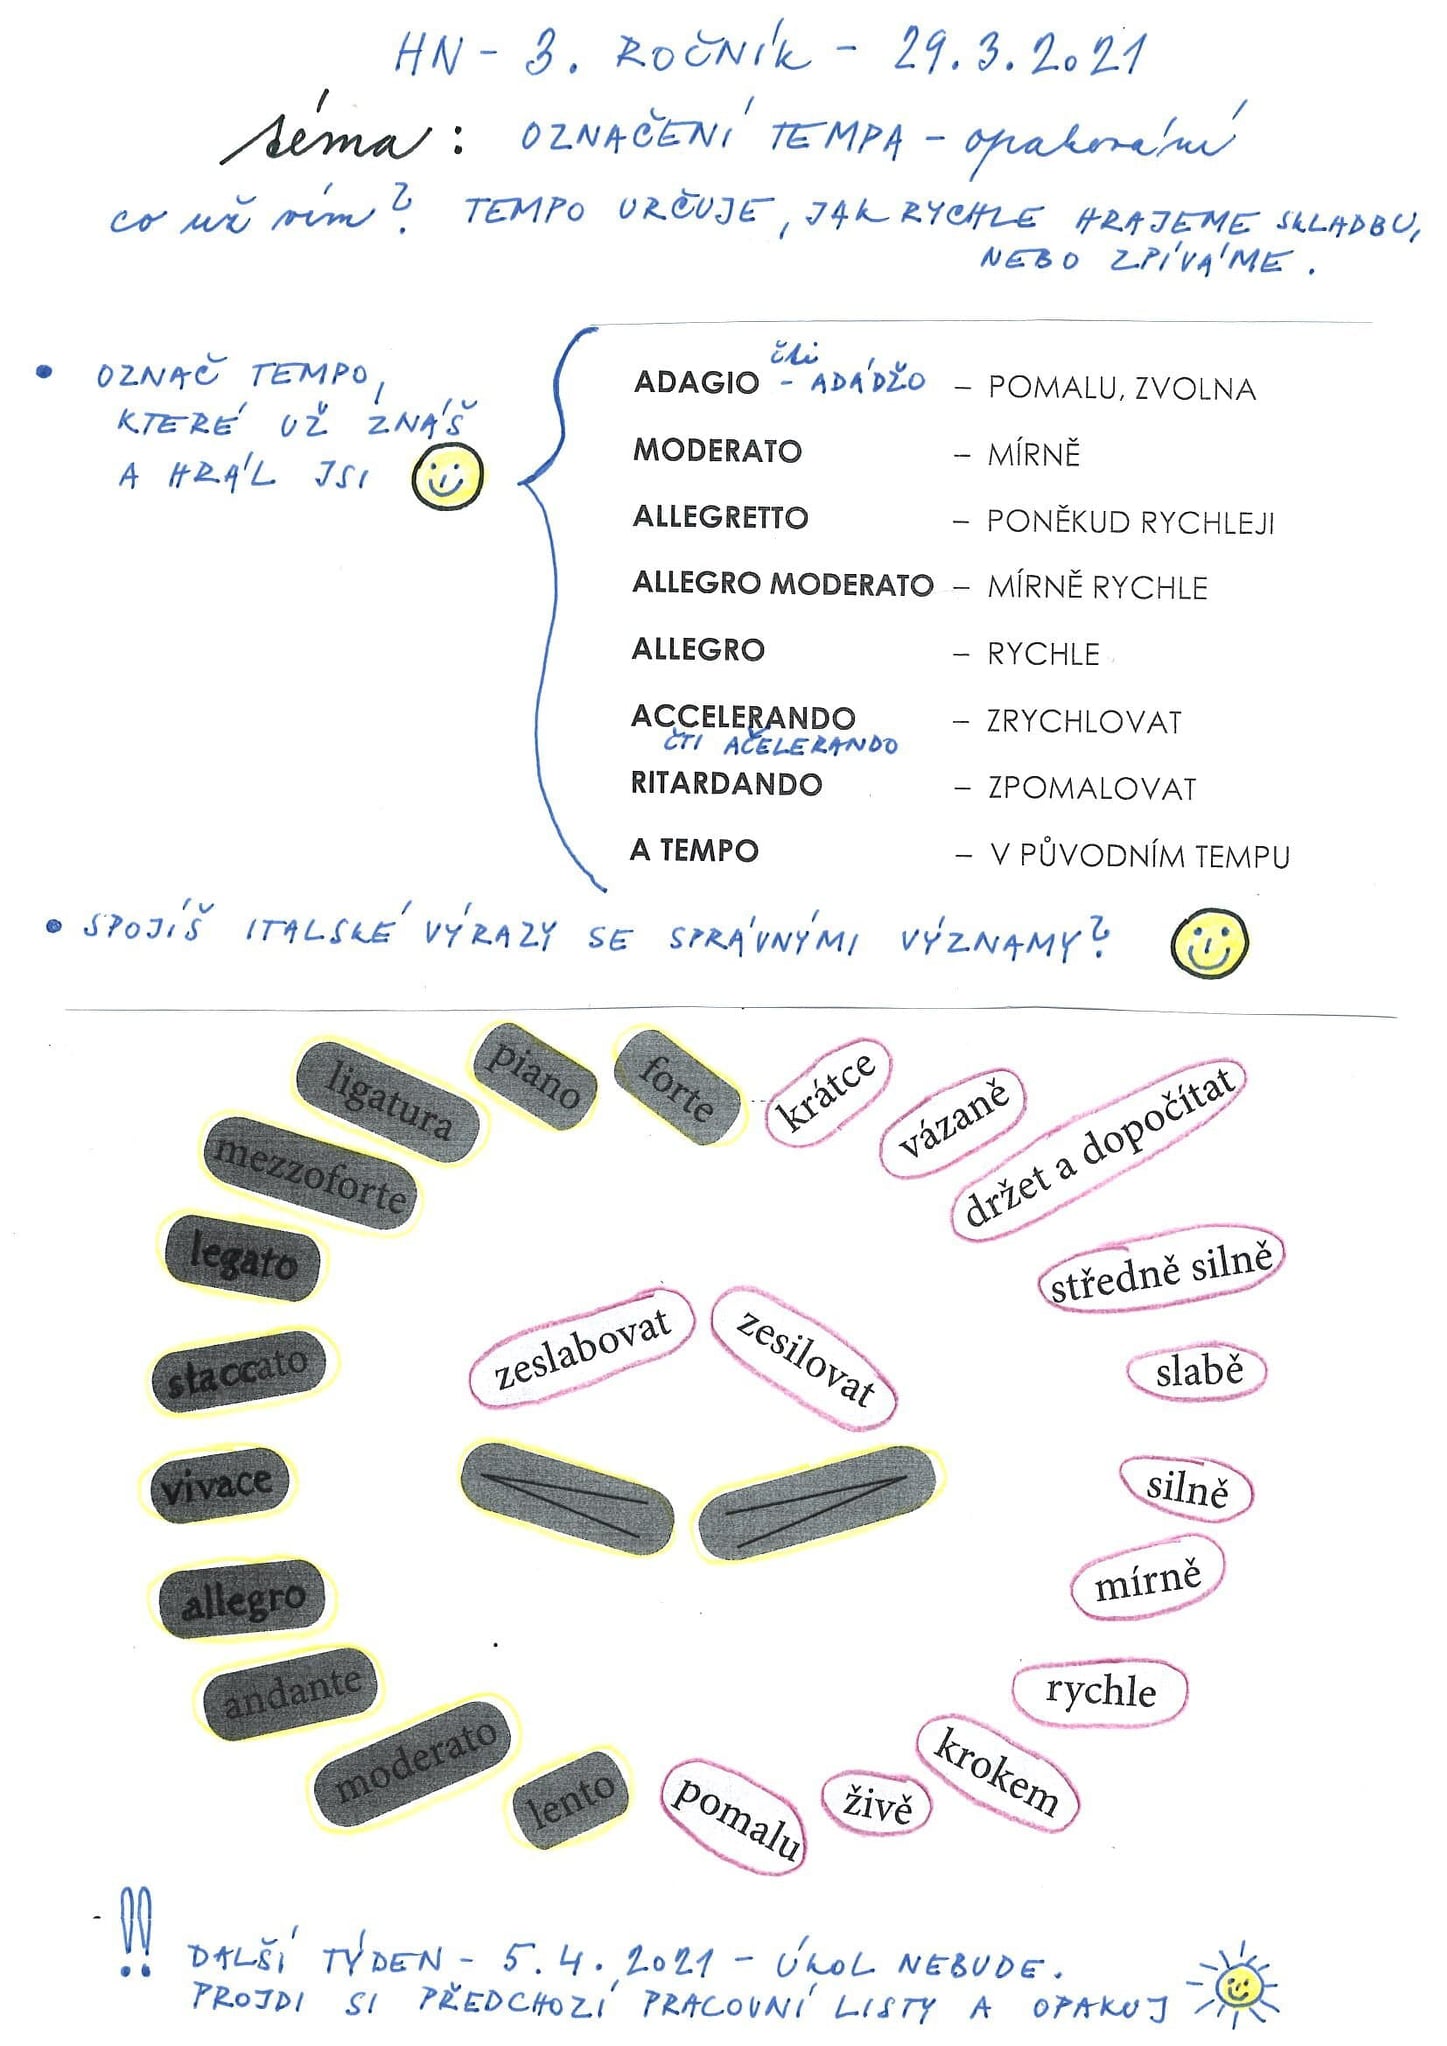 HN - 3. ROČNÍK - 29.3.2021
téma: OZNAČENÍ TEMPA - opakování
co už vím? TEMPO URČUJE, JAK RYCHLE HRAJEME SKLADBU,
NEBO ZPÍVÁME.
• OZNAČ TEMPO,
KTERÉ UŽ ZNÁŠ
A HRÁL JSI
čti
ADAGIO - ADÁDŽO – POMALU, ZVOLNA
MODERATO – MÍRNĚ
ALLEGRETTO – PONĚKUD RYCHLEJI
ALLEGRO MODERATO – MÍRNĚ RYCHLE
ALLEGRO – RYCHLE
ACCELERANDO – ZRYCHLOVAT
ČTI AČELERANDO
RITARDANDO – ZPOMALOVAT
A TEMPO – V PŮVODNÍM TEMPU
• SPOJÍŠ ITALSKÉ VÝRAZY SE SPRÁVNÝMI VÝZNAMY?
piano
forte
ligatura
mezzoforte
legato
staccato
vivace
allegro
andante
moderato
lento
krátce
vázaně
držet a dopočítat
středně silně
slabě
silně
mírně
rychle
krokem
živě
pomalu
zeslabovat
zesilovat
!! DALŠÍ TÝDEN - 5.4.2021 - ÚKOL NEBUDE.
PROJDI SI PŘEDCHOZÍ PRACOVNÍ LISTY A OPAKUJ